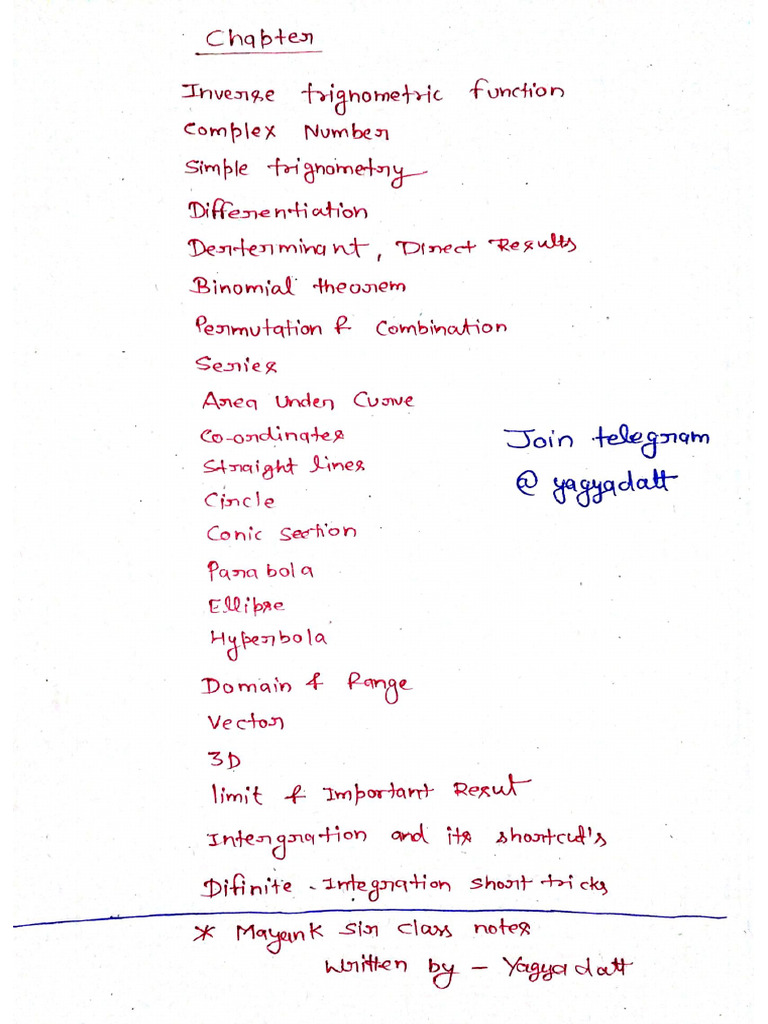 Chapter
Inverse trignometric function
Complex Number
Simple trignometry
Differentiation
Derterminant, Direct Results
Binomial theorem
Permutation & Combination
Series
Area Under Curve
Co-ordinates
Join telegram
Straight lines
@ yagyadatt
Circle
Conic Section
Parabola
Ellipse
Hyperbola
Domain & Range
Vector
3D
limit & Important Resut
Intergration and its shortcut's
Difinite - Integration short tricks
* Mayank Sir Class notes
Written by - Yagyadatt